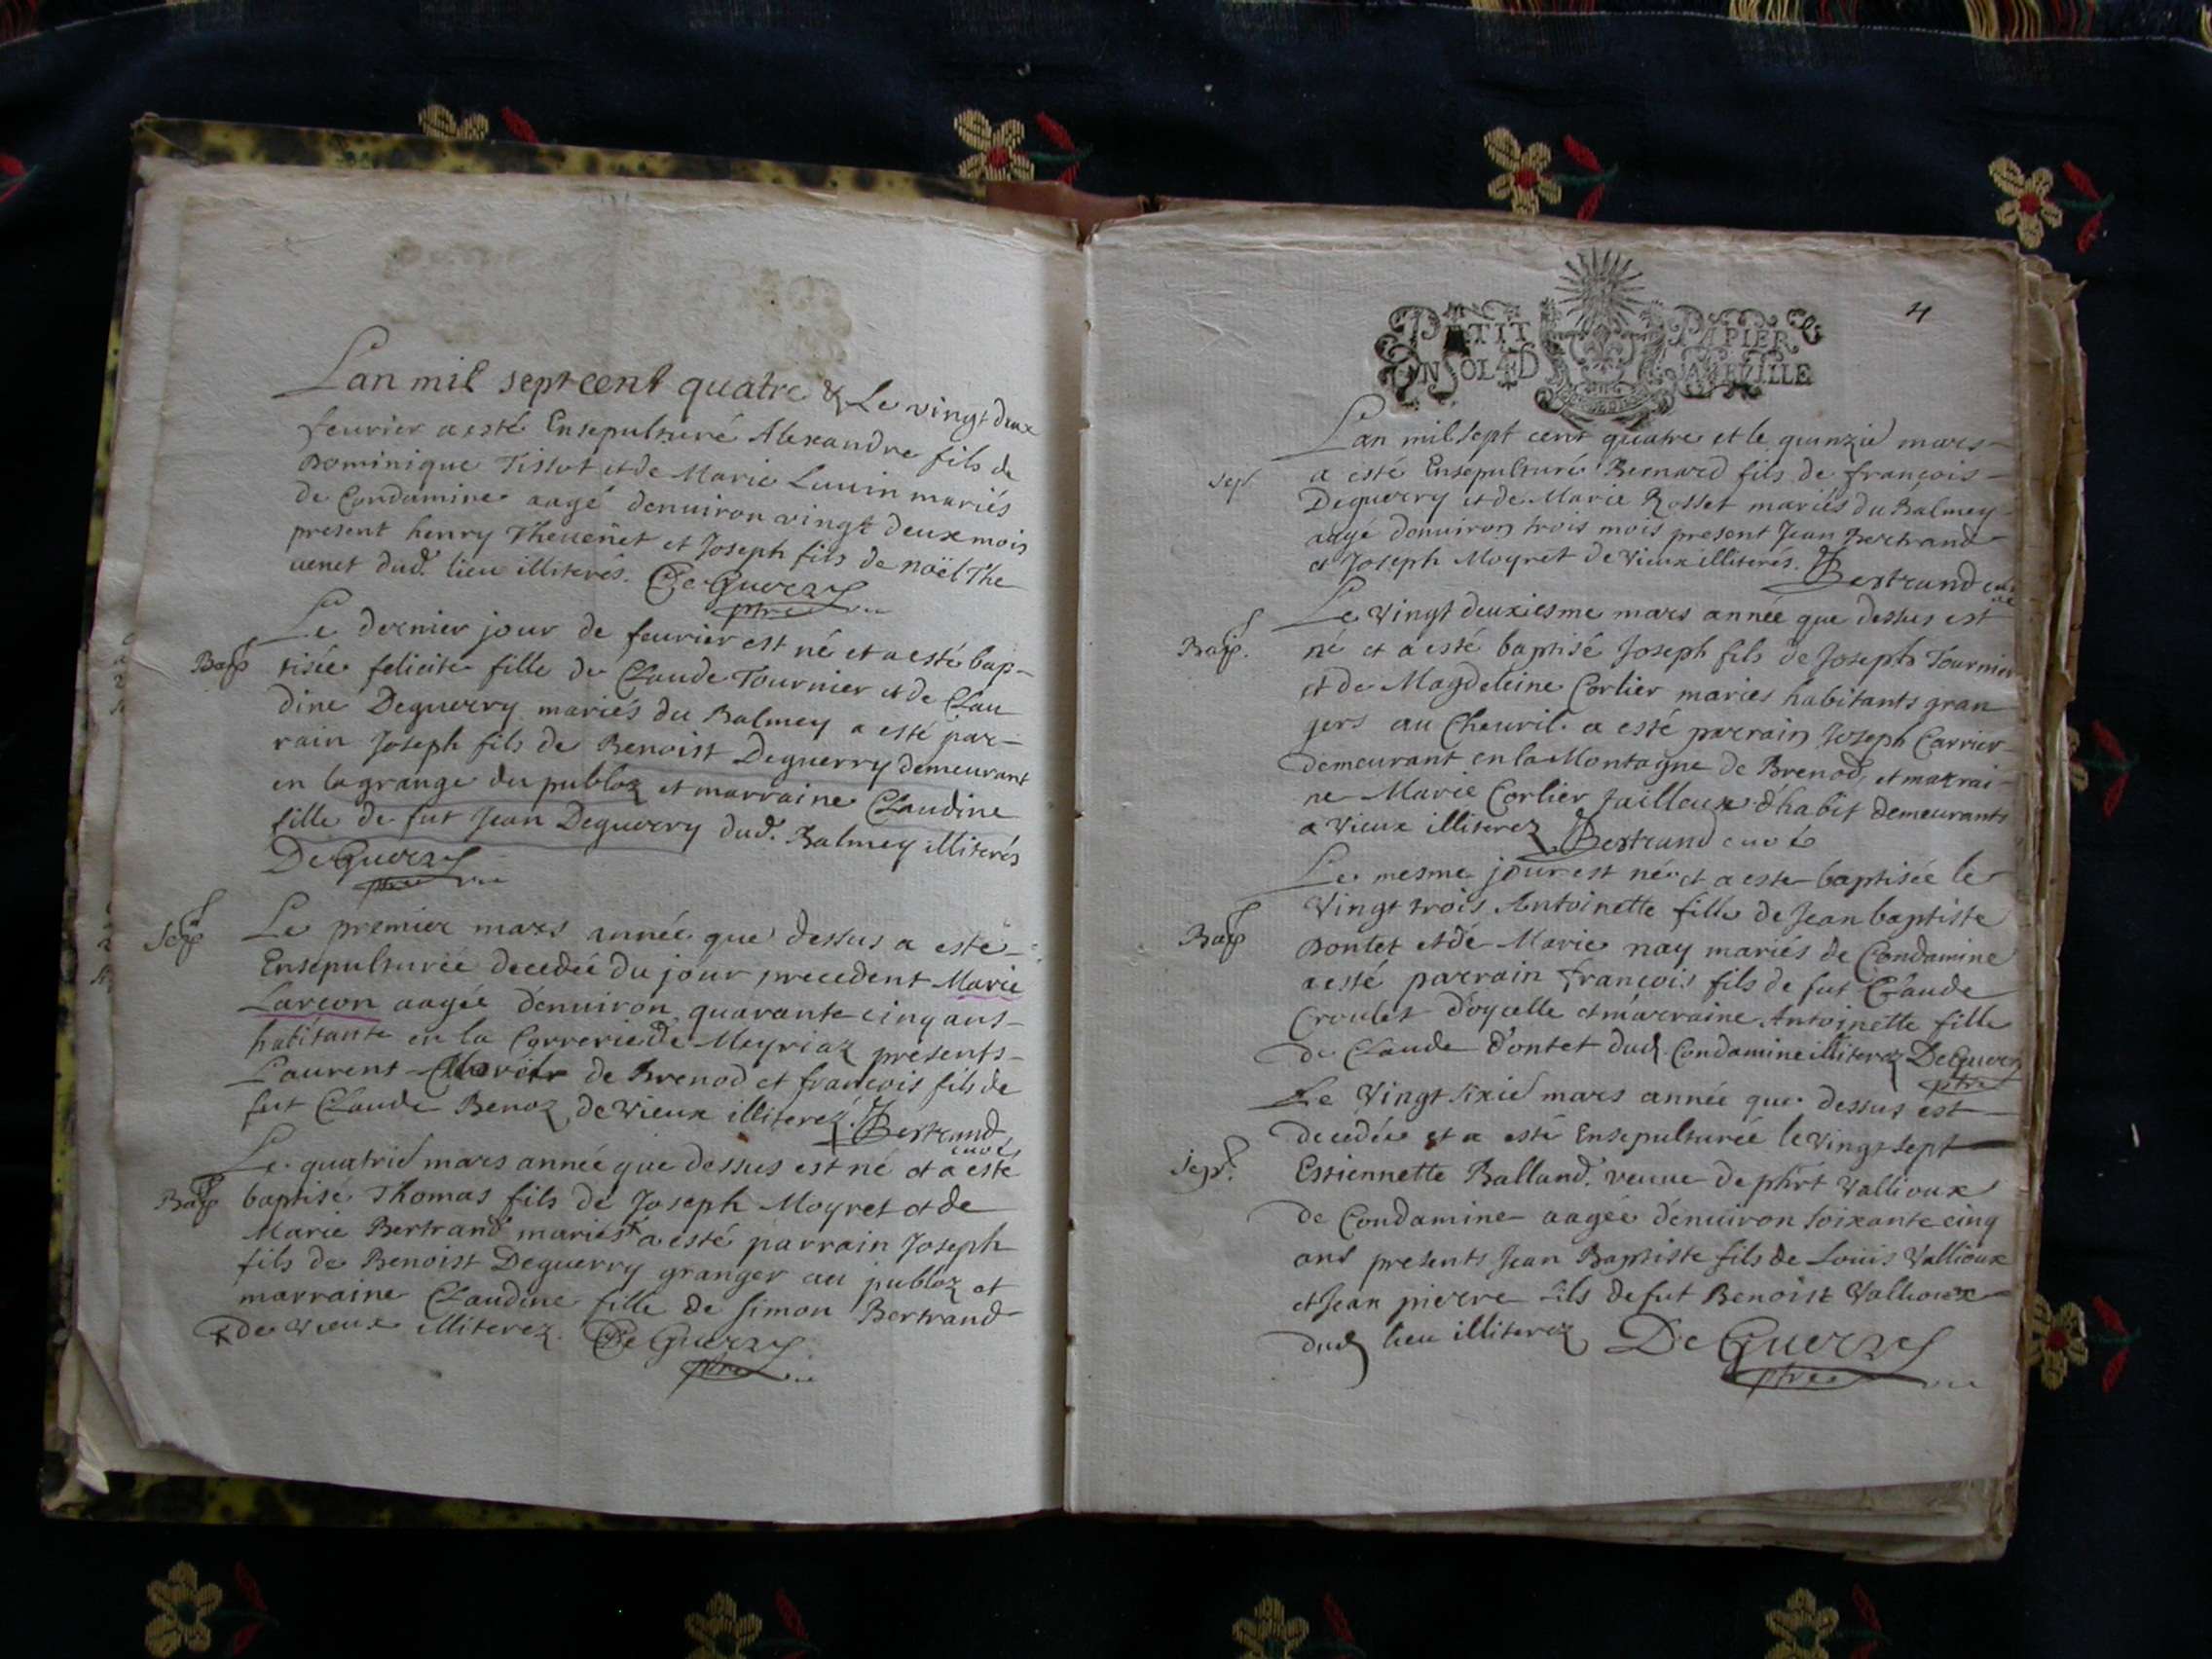 Lan mil sept cent quatre & Le vingt deux
feurier a esté Ensepulturé Alexandre fils de
Dominique Tissot et de Marie Lauin mariés
de Condamine aagé denuiron vingt deux mois
present henry Theuenet et Joseph fils de noël The
uenet dud. lieu illiterés. DeGuerry
ptre
Le dernier jour de feurier est né et a esté bap-
Bap tisée felicite fille de Claude Tournier et de Clau
dine Deguerry mariés du Balmey a esté par-
rain Joseph fils de Benoist Deguerry demeurant
en la grange du publoz et marraine Claudine
fille de fut Jean Deguerry dud. Balmey illiterés
DeGuerry
ptre
Sep Le premier mars année que dessus a esté
Ensepulturée decedée du jour precedent Marie
Larcon aagée denuiron quarante cinq ans
habitante en la Correrie de Meyriaz presents
Laurent de Brenod et françois fils de
fut Claude Benoz de Vieux illiterez. Bertrand
curé
Le quatrie mars année que dessus est né et a esté
Bap baptisé Thomas fils de Joseph Moyret et de
Marie Bertrand mariés a esté parrain Joseph
fils de Benoist Deguerry granger au publoz et
marraine Claudine fille de Simon Bertrand
de vieux illiterez. DeGuerry
ptre
4
PETIT PAPIER
UN SOL 4 D LA FEUILLE
Lan mil sept cent quatre et le quinzie mars
sep. a esté Ensepulturé Bernard fils de françois
Deguerry et de Marie Rosset mariés du Balmey
aagé denuiron trois mois present Jean Bertrand
et Joseph Moyret de Vieux illiterés. Bertrand curé
Le Vingt deuxiesme mars année que dessus est
Bap. né et a esté baptisé Joseph fils de Joseph Tournier
et de Magdeleine Corlier mariés habitants gran
gers au Cheuril a esté parrain Joseph Carrier
demeurant en la Montagne de Brenod, et marrai-
ne Marie Corlier tailleuse d'habit demeurants
a Vieux illiterez Bertrand curé
Le mesme jour est né et a esté baptisée le
Bap Vingt trois Antoinette fille de Jean baptiste
Dontet et de Marie nay mariés de Condamine
a esté parrain françois fils de fut Claude
Croulet d'oycelle et marraine Antoinette fille
de Claude Dontet dud. Condamine illiterez DeGuerry
ptre
Le Vingt sixie mars année que dessus est
decedée et a esté Ensepulturée le vingt sept
sep. Estiennette Balland. veuue de phirt Vallioux
de Condamine aagée denuiron soixante cinq
ans presents Jean Baptiste fils de Loüis Vallioux
et Jean pierre fils de fut Benoist Vallioux
dud lieu illiterez DeGuerry
ptre